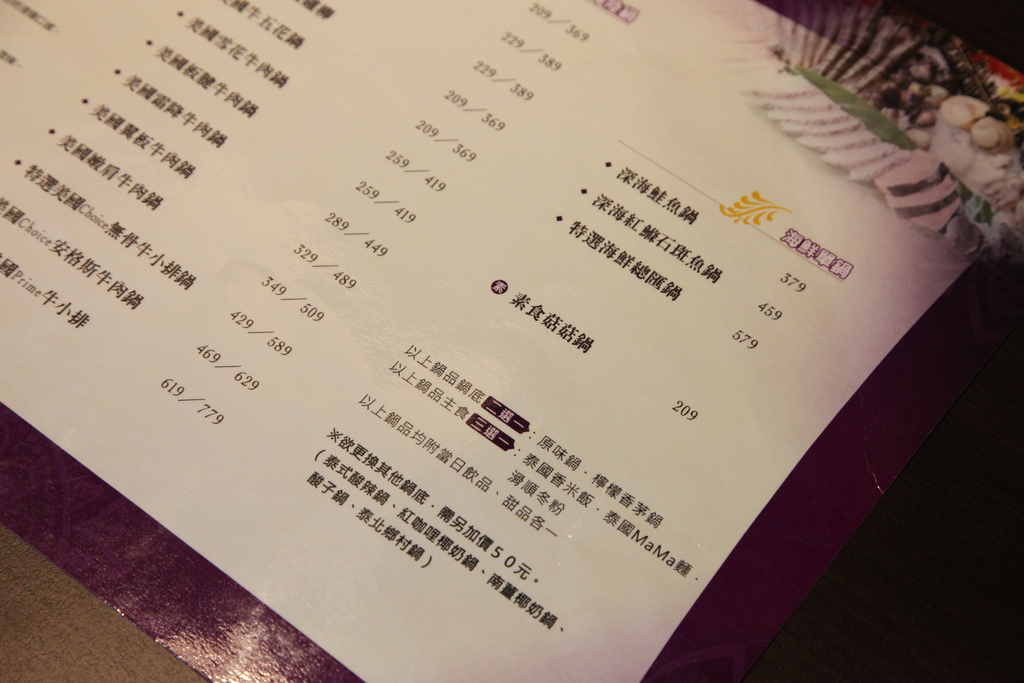 國牛五花鍋
美國雪花牛肉鍋
美國板腱牛肉鍋
美國霜降牛肉鍋
美國翼板牛肉鍋
美國嫩肩牛肉鍋
特選美國Choice無骨牛小排鍋
國Choice安格斯牛肉鍋
國Prime牛小排
209／369
229／389
229／389
209／369
209／369
259／419
259／419
289／449
329／489
349／509
429／589
469／629
619／779
海鮮單鍋
深海鮭魚鍋 379
深海紅鰷石斑魚鍋 459
特選海鮮總匯鍋 579
素 素食菇菇鍋 209
以上鍋品鍋底二選一：原味鍋．檸檬香茅鍋
以上鍋品主食三選一：泰國香米飯．泰國MaMa麵．
滑順冬粉
以上鍋品均附當日飲品、甜品各一
※欲更換其他鍋底，需另加價５０元。
(泰式酸辣鍋、紅咖哩椰奶鍋、南薑椰奶鍋、
酸子鍋、泰北鄉村鍋)